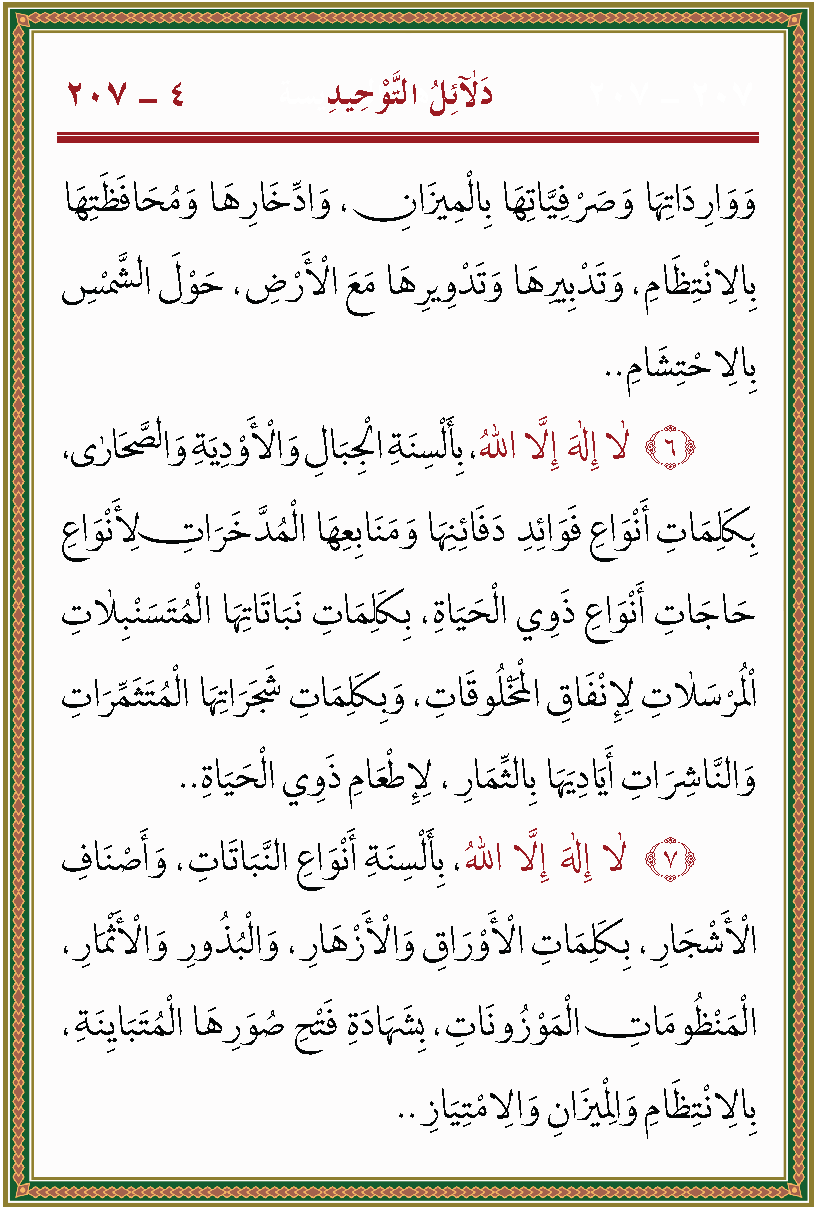 دَلَآئِلُ التَّوْحِيدِ ٤ – ٢٠٧
وَوَارِدَاتِهَا وَصَرْفِيَّاتِهَا بِالْمِيزَانِ ، وَادِّخَارِهَا وَمُحَافَظَتِهَا
بِالِانْتِظَامِ ، وَتَدْبِيرِهَا وَتَدْوِيرِهَا مَعَ الْأَرْضِ ، حَوْلَ الشَّمْسِ
بِالِاحْتِشَامِ..
﴿٦﴾ لَا إِلَهَ إِلَّا اللهُ ، بِأَلْسِنَةِ الْجِبَالِ وَالْأَوْدِيَةِ وَالصَّحَارٰى ،
بِكَلِمَاتِ أَنْوَاعِ فَوَائِدِ دَفَائِنِهَا وَمَنَابِعِهَا الْمُدَّخَرَاتِ لِأَنْوَاعِ
حَاجَاتِ أَنْوَاعِ ذَوِي الْحَيَاةِ ، بِكَلِمَاتِ نَبَاتَاتِهَا الْمُتَسَنْبِلَاتِ
الْمُرْسَلَاتِ لِإِنْفَاقِ الْمَخْلُوقَاتِ ، وَبِكَلِمَاتِ شَجَرَاتِهَا الْمُتَثَمِّرَاتِ
وَالنَّاشِرَاتِ أَيَادِيَهَا بِالثِّمَارِ ، لِإِطْعَامِ ذَوِي الْحَيَاةِ..
﴿٧﴾ لَا إِلَهَ إِلَّا اللهُ ، بِأَلْسِنَةِ أَنْوَاعِ النَّبَاتَاتِ ، وَأَصْنَافِ
الْأَشْجَارِ ، بِكَلِمَاتِ الْأَوْرَاقِ وَالْأَزْهَارِ ، وَالْبُذُورِ وَالْأَثْمَارِ ،
الْمَنْظُومَاتِ الْمَوْزُونَاتِ ، بِشَهَادَةِ فَتْحِ صُوَرِهَا الْمُتَبَايِنَةِ ،
بِالِانْتِظَامِ وَالْمِيزَانِ وَالِامْتِيَازِ..